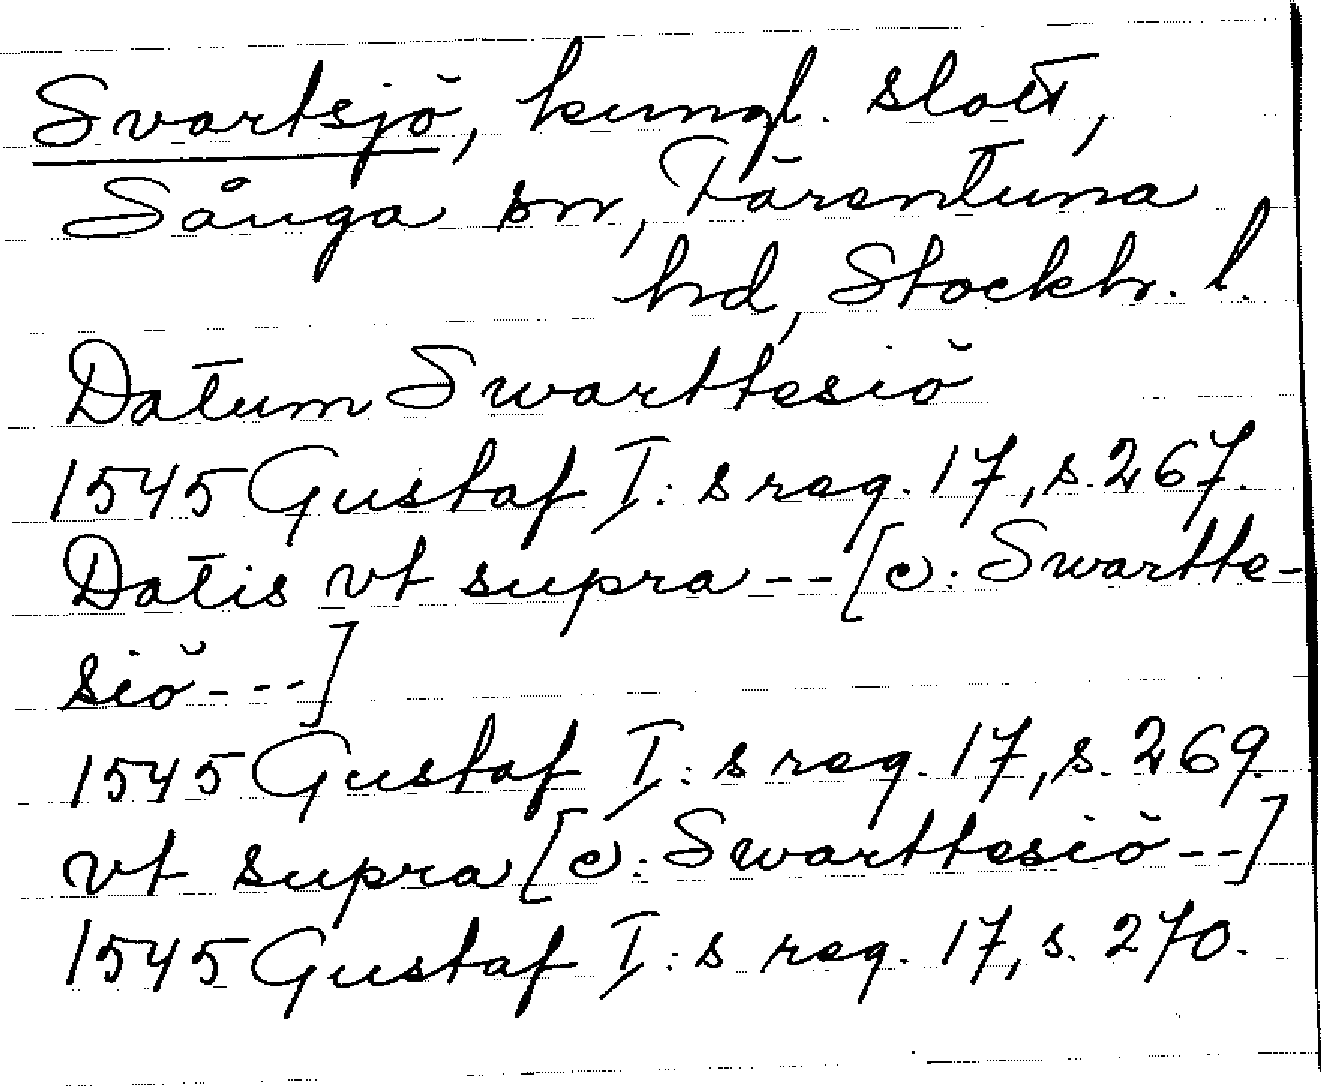 Svartsjö, kungl. slott,
Sånga sn, Färentuna
hd, Stockh. l.
Datum Swarttesiö
1545 Gustaf I:s reg. 17, s. 267.
Datis vt supra -- [ɔ: Swartte-
siö ---]
1545 Gustaf I:s reg. 17, s. 269.
vt supra [ɔ: Swarttesiö --]
1545 Gustaf I:s reg. 17, s. 270.